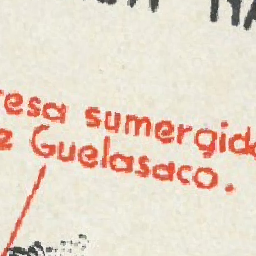 resa sumergida
e Guelasaco.